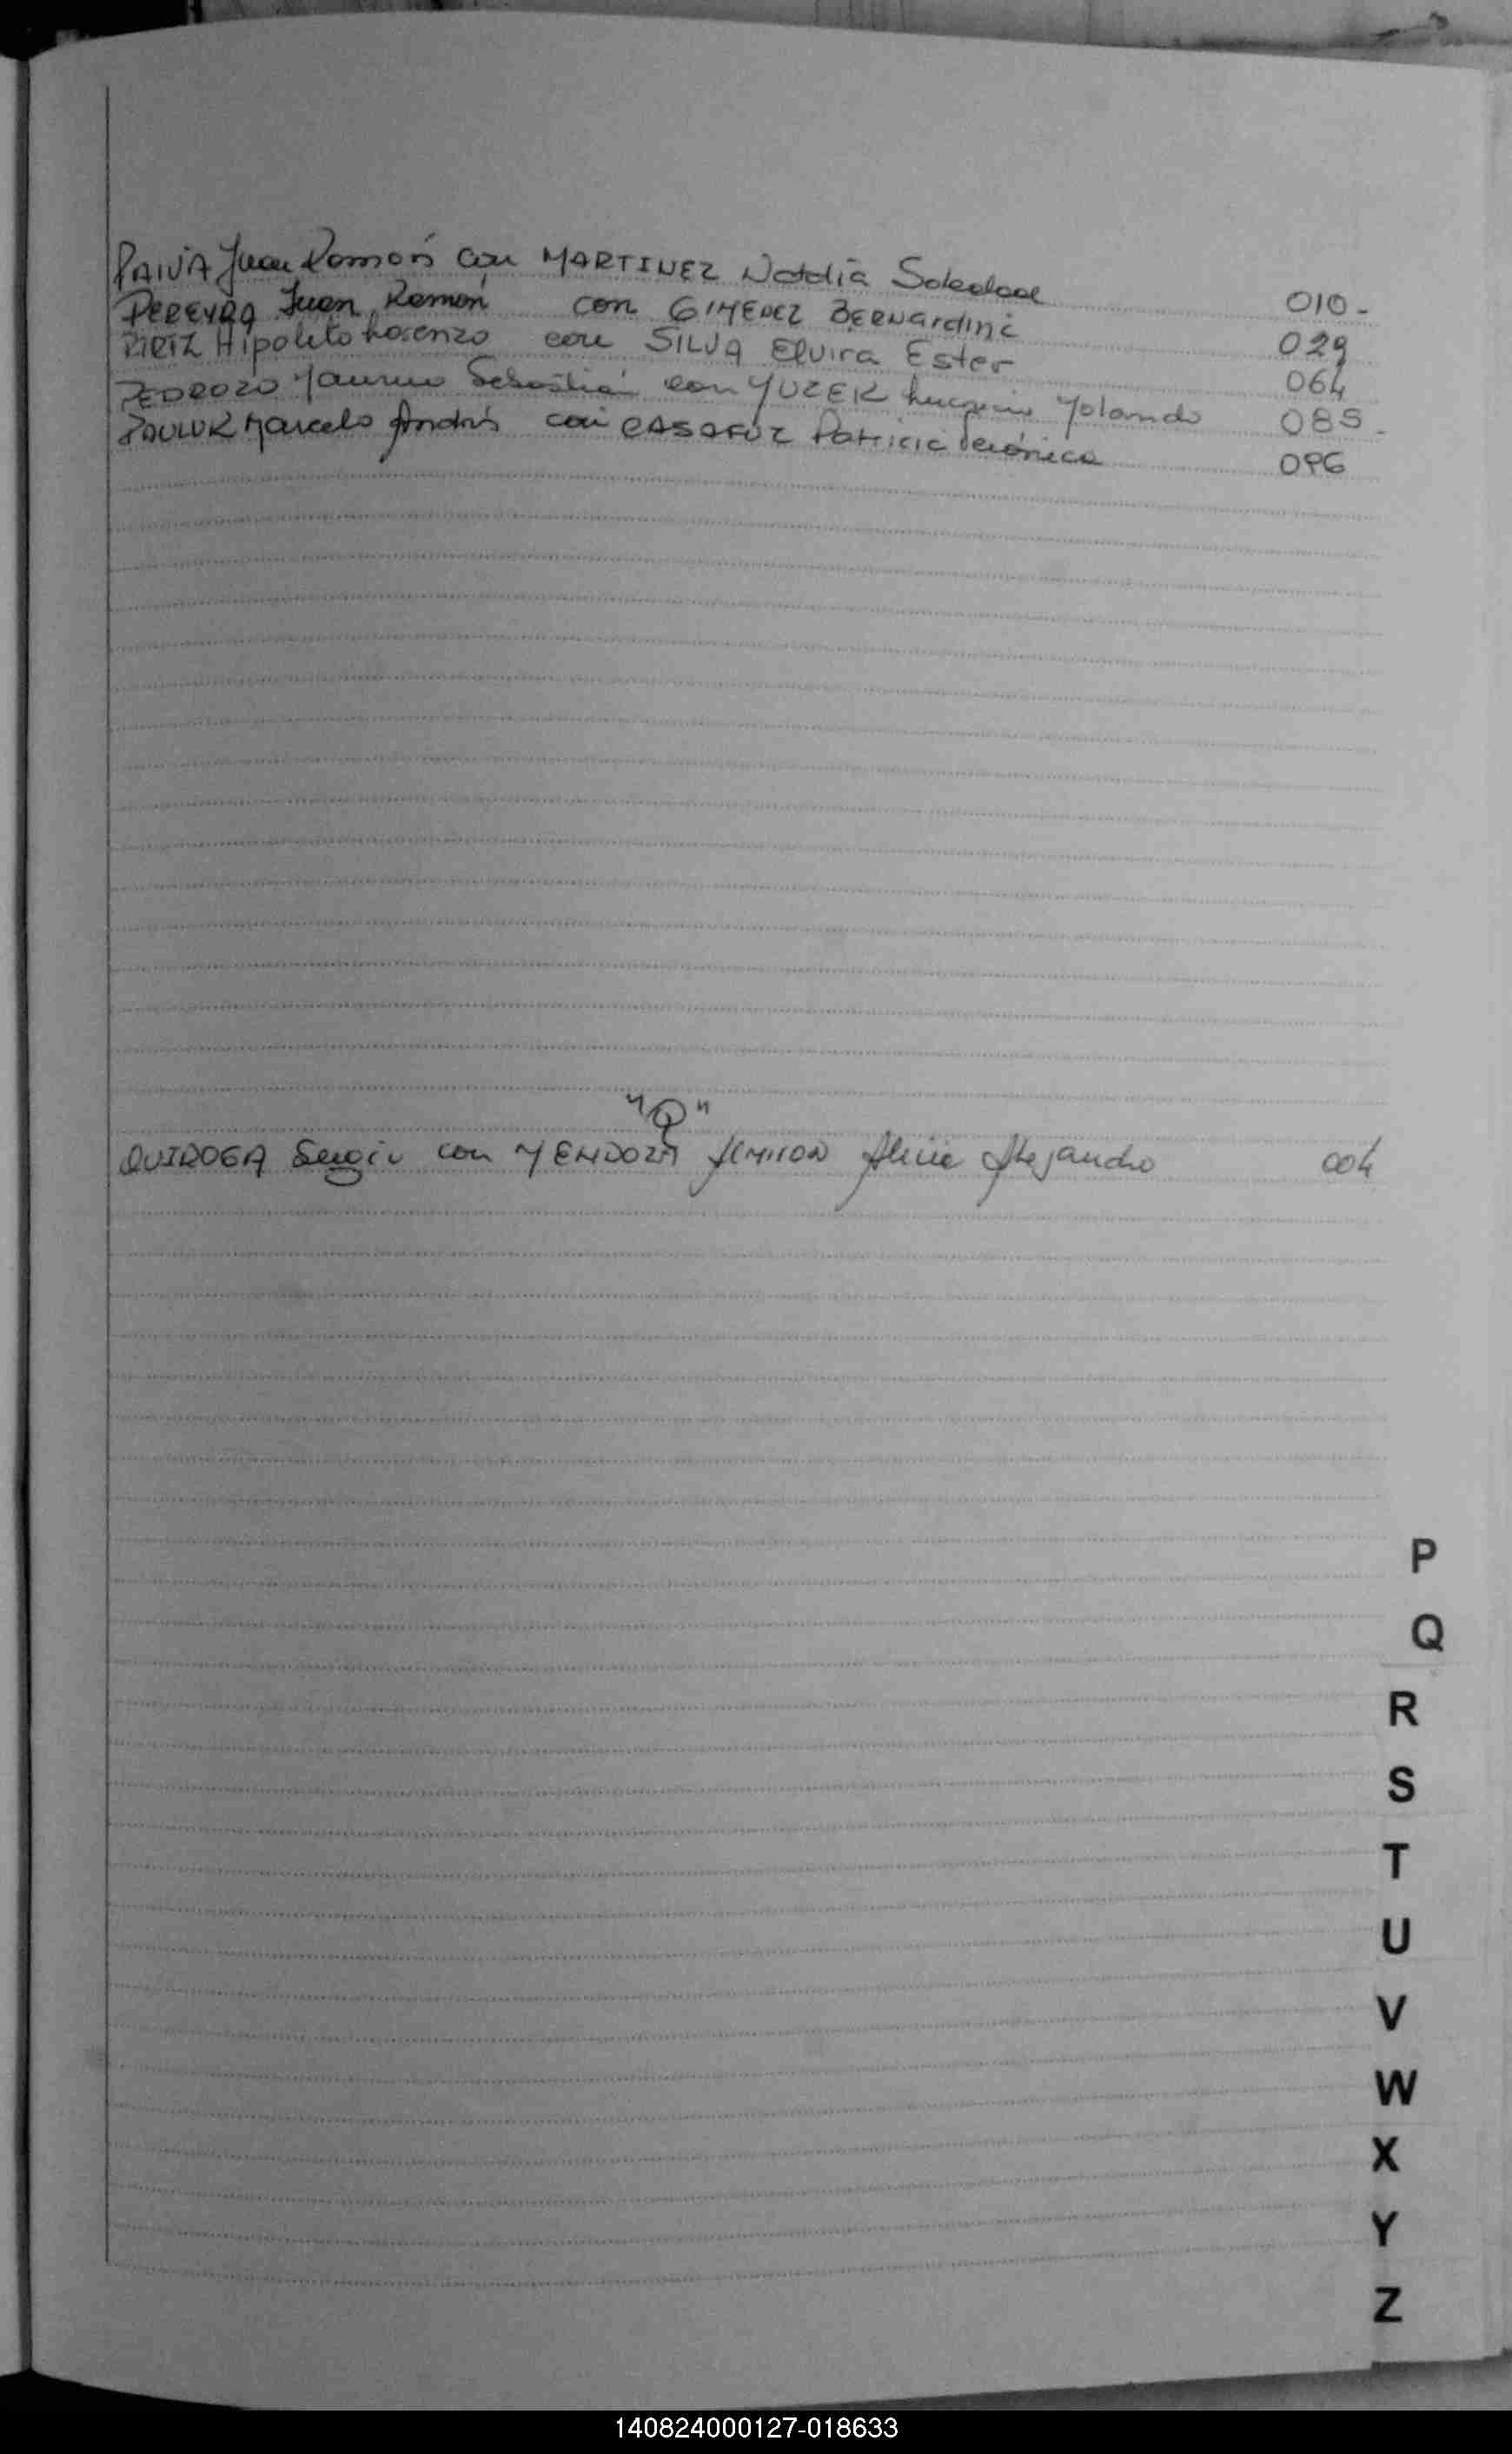 PAIVA Juan Ramón con MARTINEZ Natalia Soledad 010-
PEREYRA Juan Ramón con GIMENEZ BERNardina 029
PIRIZ Hipolito Lorenzo con SILVA Elvira Ester 064
PEDROZO Mauricio Sebastián con YUZEK Yolanda 085-
PAULUK Marcelo Andrés con CASAFUZ Patricia Verónica 096
"Q"
QUIROGA Sergio con MENDOZA Alicia Alejandra 004
P
Q
R
S
T
U
V
W
X
Y
Z
140824000127-018633